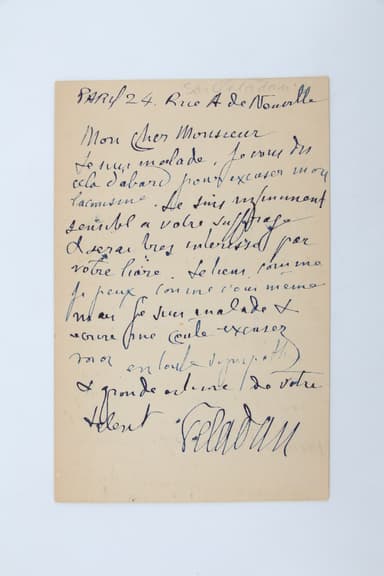 PARIS 24. Rue A de Neuville
Mon Cher Monsieur
Je suis malade. Je vous dis
cela d'abord pour excuser mon
laconisme. Je suis infiniment
sensibl a votre suffrage
& serai très interessé par
votre livre. comme
Je peux comme vous même
mais Je suis malade &
ecrire me Coute excusez
moi en toute sympathie
& grande estime de votre
talent Peladan